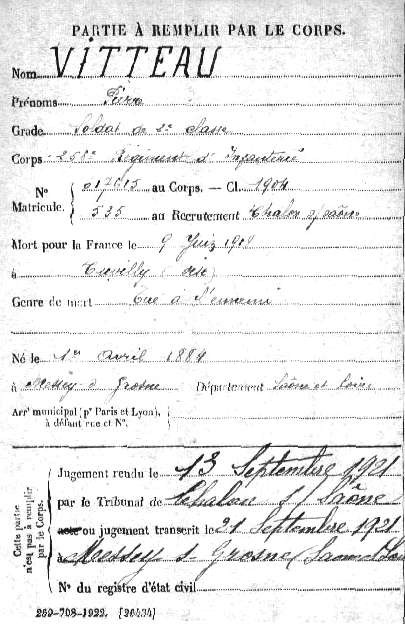 PARTIE À REMPLIR PAR LE CORPS.
Nom VITTEAU
Prénoms Pierre
Grade Soldat de 2e classe
Corps Régiment d'Infanterie
Nº Matricule. { 017015 au Corps. — Cl. 1904
535 au Recrutement Chalon s/ saône
Mort pour la France le 9 Juin
à (oise)
Genre de mort Tué à l'ennemi
Né le 1er avril 1884
à Messey s Grosne Département Saône et Loire
Arrt municipal (pr Paris et Lyon),
à défaut rue et Nº.
Cette partie n'est pas à remplir par le Corps.
Jugement rendu le 13 Septembre 1921
par le Tribunal de Chalon s/ Saône
acte ou jugement transcrit le 21 Septembre 1921
à Messey s Grosne (Saone et Loire
Nº du registre d'état civil
269-708-1922. [26434]